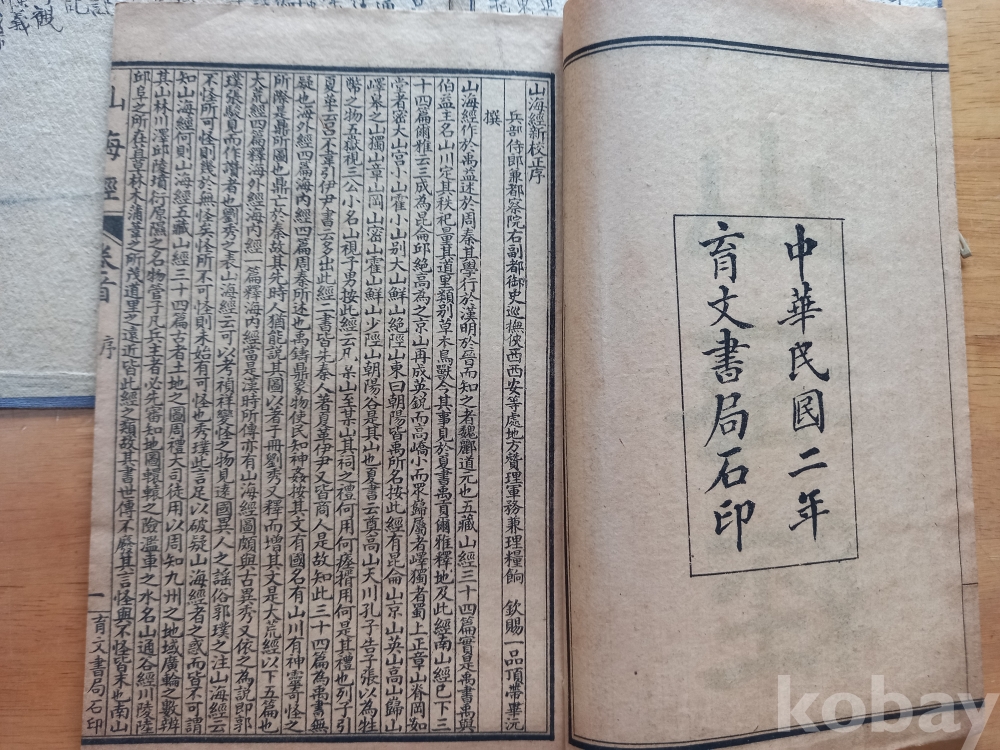 中華民國二年
育文書局石印
山海經新校正序
兵部侍郎兼都察院右副都御史巡撫陝西西安等處地方贊理軍務兼理糧餉 欽賜一品頂帶畢沅
撰
山海經作於禹益述於周秦其學行於漢明於晉而知之者魏酈道元也五藏山經三十四篇實是禹書禹與
伯益主名山川定其秩祀量其道里類别草木鳥獸今其事見於夏書禹貢爾雅釋地及此經南山經已下三
十四篇爾雅云三成為昆侖邱絕高為之京山再成英銳而高嶠小而眾歸屬者嶧獨者蜀上正章山脊岡如
堂者密大山宮小山霍小山别大山鮮山絕陘山東曰朝陽皆禹所名按此經有昆侖山京山英山高山歸山
嶧皋之山獨山章山岡山密山霍山鮮山少陘山朝陽谷是其山也夏書云奠高山大川孔子告子張以為牲
幣之物五嶽視三公小名山視子男按此經云凡某山至某山其祠之禮何用何瘞糈用何是其禮也列子引
夏革云呂不韋引伊尹書云多出此經二書皆先秦人著夏革伊尹又皆商人是故知此三十四篇為禹書無
疑也海外經四篇海內經四篇周秦所述也禹鑄鼎象物使民知神姦按其文有國名有山川有神靈奇怪之
所際是鼎所圖也鼎亡於秦故其先時人猶能說其圖以著于冊劉秀又釋而增其文是大荒經以下五篇也
大荒經四篇釋海外經海內經一篇釋海內經當是漢時所傳亦有山海經圖頗與古異秀又依之為說即郭
璞張駿見而作讚者也劉秀之表山海經云可以考禎祥變怪之物見遠國異人之謠俗郭璞之注山海經云
不怪所可怪則幾於無怪矣怪所不可怪則未始有可怪也秀璞此言足以破疑山海經者之惑而皆不可謂
知山海經何則山海經五藏山經三十四篇古者土地之圖周禮大司徒用以周知九州之地域廣輪之數辨
其山林川澤邱陵墳衍原隰之名物管子凡兵主者必先審知地圖轘轅之險濫車之水名山通谷經川陵陸
邱阜之所在苴草林木蒲葦之所茂道里之遠近皆此經之類故其書世傳不廢其言怪與不怪皆末也南山
山海經 卷首 序 一 育文書局石印
kobay